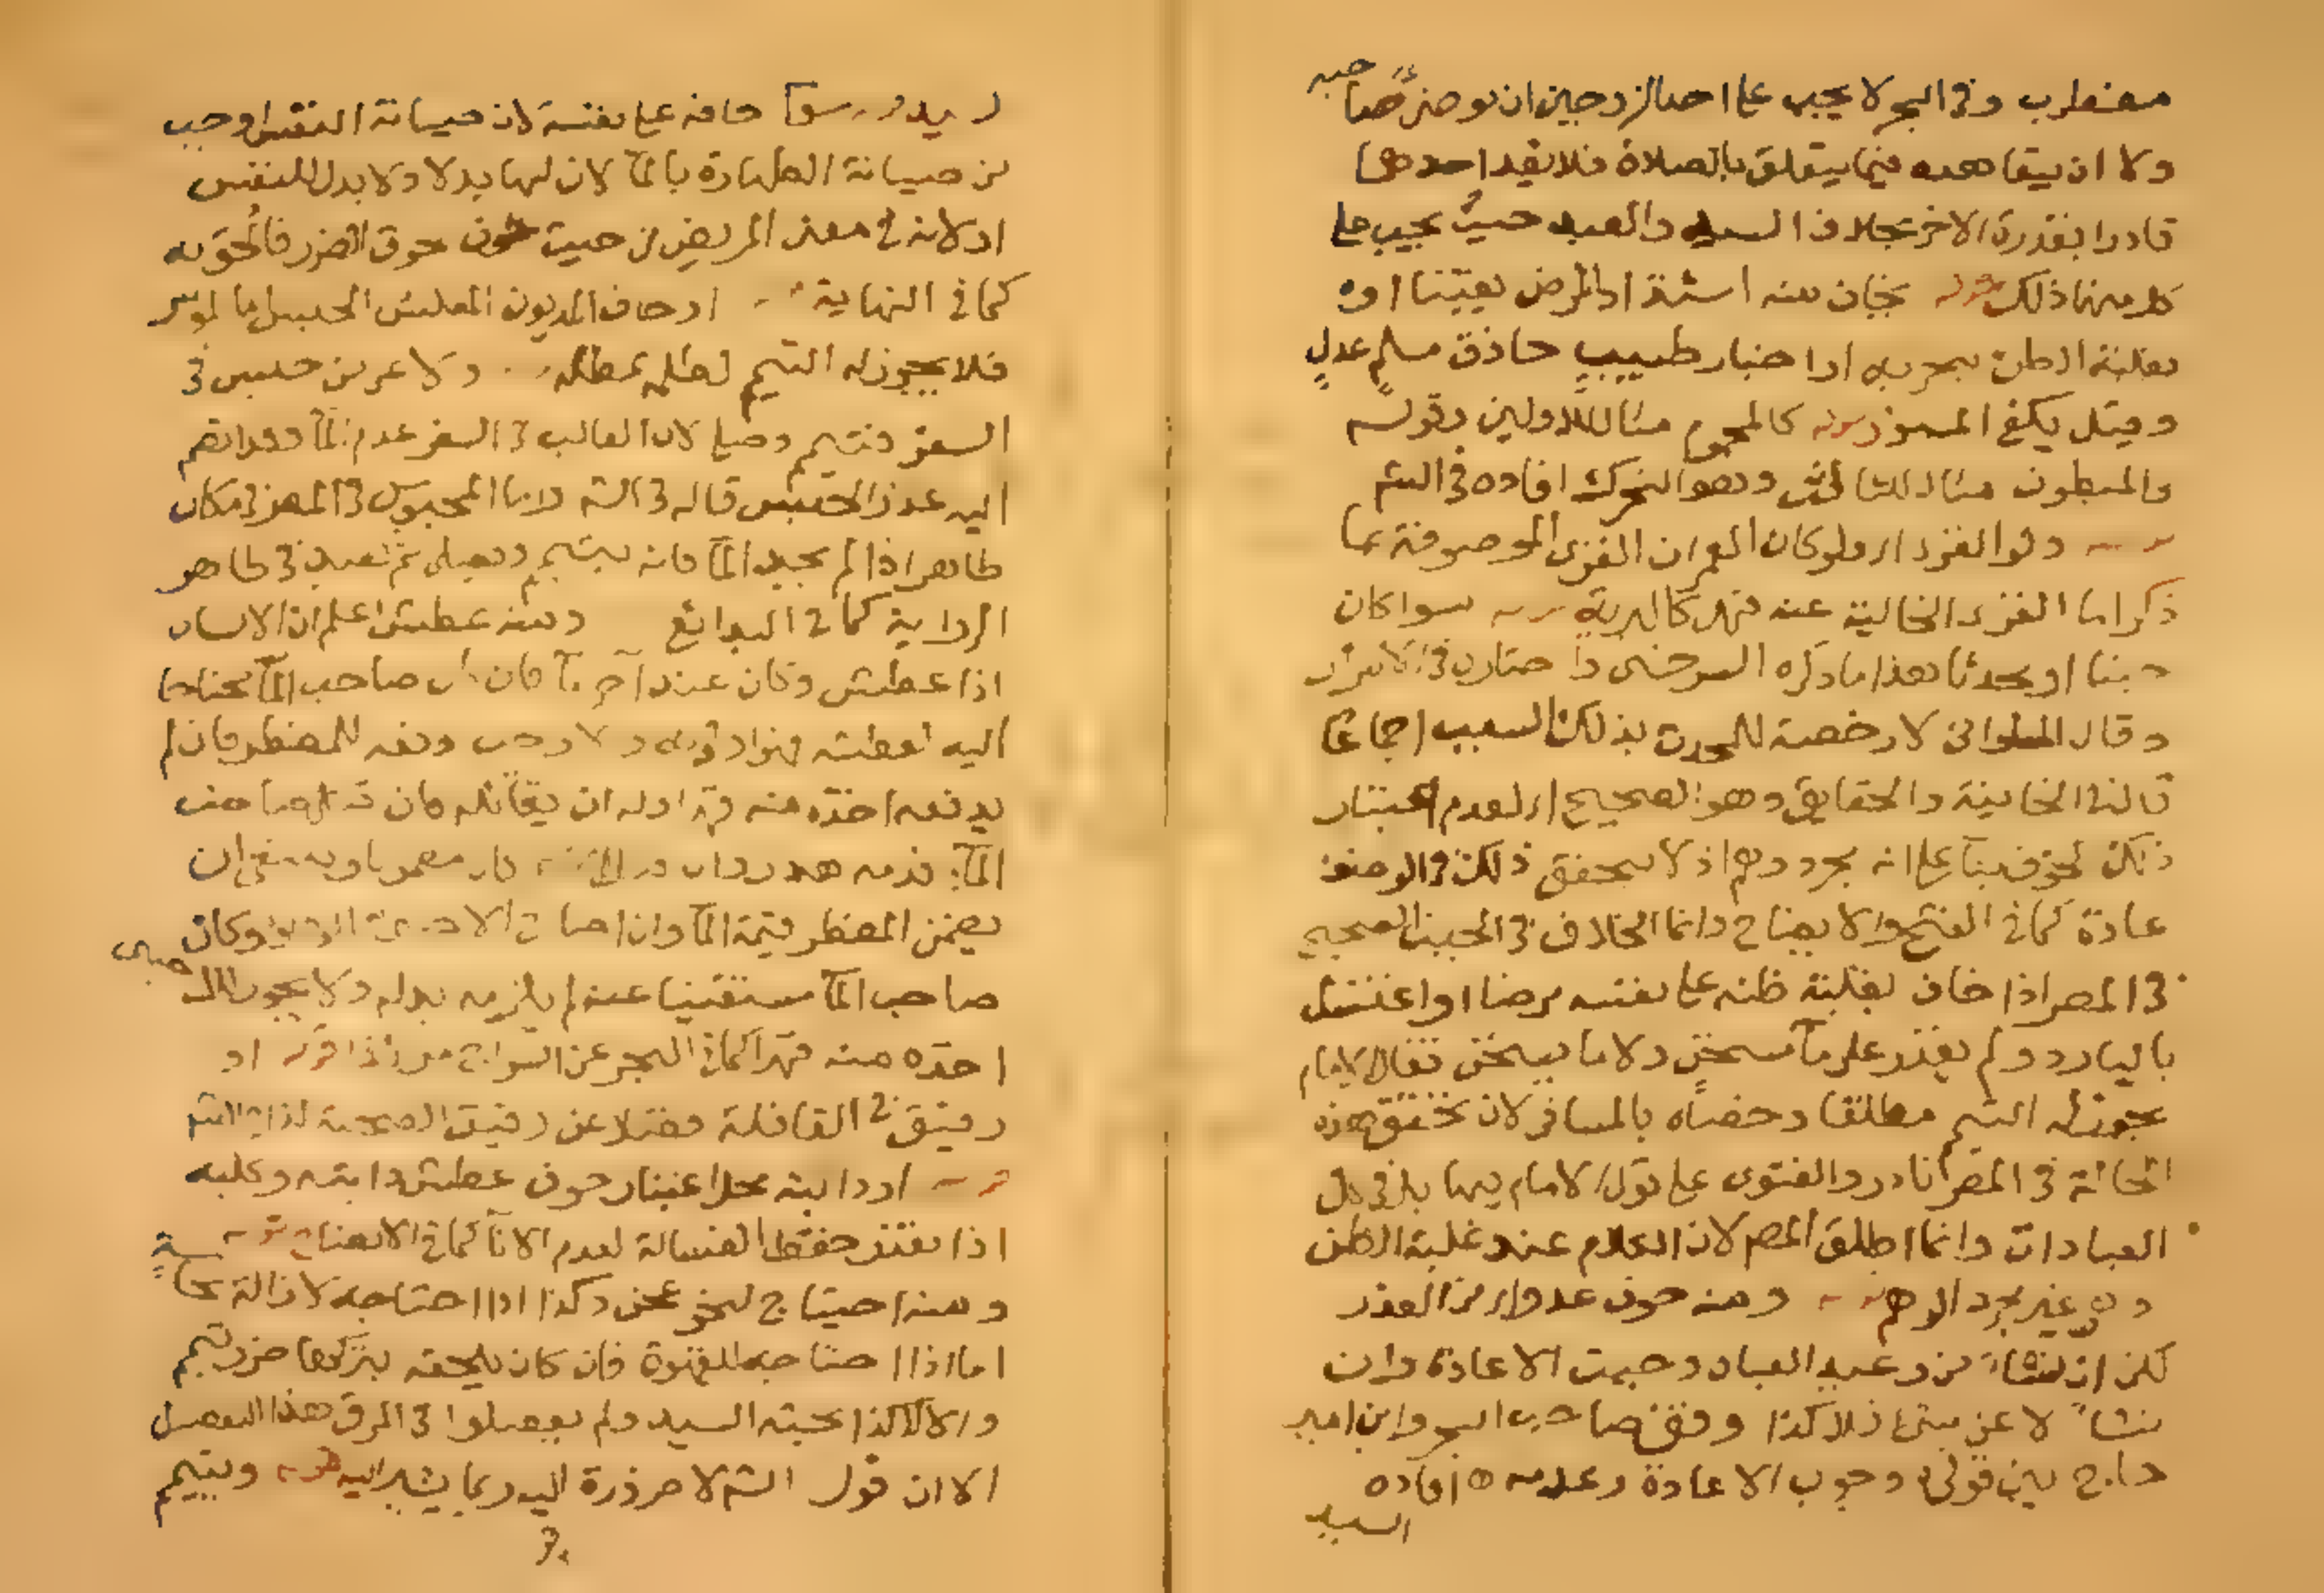 مضطرب وفى البحر لا يجب على احد الزوجين ان يوضئ صاحبه
ولا ان يتعاهده فيما يتعلق بالصلاة فلا يعد احدهما
قادرا بقدرة الاخر بخلاف السيد والعبد حيث يجب على
كل منهما ذلك قوله يخاف منه اشتداد المرض يقينا او
بغلبة الظن بتجربه او اخبار طبيب حاذق مسلم عدل
وقيل يكفى المستور قوله كالمحموم مثال للاولين وقوله
والمبطون مثال للثالث وهو التحرك افاده فى الشرح
قوله ولو القرى اى ولو كان العمران القرى الموصوفة بما
ذكر اما القرى الخالية عنه فهى كالبرية قوله سواء كان
جنبا او محدثا هذا ما ذكره السرخسى واختاره فى الاسرار
وقال الحلوانى لا رخصة للمحدث بذلك السبب اجماعا
قال فى الخانية والحقايق وهو الصحيح اى لعدم اعتبار
ذلك الخوف بناء على انه مجرد وهم اذ لا يتحقق ذلك فى الوضوء
عادة كما فى الفتح والايضاح وانما الخلاف فى الجنب الصحيح
فى المصر اذا خاف بغلبة ظنه على نفسه مرضا لو اغتسل
بالبارد ولم يقدر على ماء مسخن ولا ما يسخن فقال الامام
يجوز له التيمم مطلقا وخصاه بالمسافر لان تحقق هذه
الحالة فى المصر نادر والفتوى على قول الامام فيها بل فى كل
العبادات وانما اطلق المص لان الكلام عند غلبة الظن
وهى غير مجرد الوهم قوله ومنه خوف عدو اى من العذر
لكن ان نشأ من وعيد العباد وجبت الاعادة وان
نشأ لا عن شئ فلا كذا وفق صاحب البحر وابن امير
حاج بين قولى وجوب الاعادة وعدمه ه افاده
السيد
حافه على نفسه لان صيانة النفس اوجب
من صيانة الطهارة بالماء لان لها بدلا ولا بدل للنفس
او لانه فى معنى المريض من حيث خوف لحوق الضرر فالحق به
كما فى النهاية او خاف المديون المفلس الحبس اما الموسر
فلا يجوز له التيمم لظلمه بمطله ولا عمن حبس فى
السفر فتيمم وصلى لان الغالب فى السفر عدم الماء وقد انضم
اليه عذر الحبس قاله فى الشرح واما المحبوس فى المصر فى مكان
طاهر اذا لم يجد الماء فانه يتيمم ويصلى ثم يعيد فى ظاهر
الرواية كما فى البدائع ومنه عطش اعلم ان الانسان
اذا عطش وكان عند آخر ماء فان كان صاحب الماء محتاجا
اليه لعطشه فهو اولى به والا وجب دفعه للمضطر فان لم
يدفعه اخذه منه قهرا وله ان يقاتله فان قتل صاحب
الماء فدمه هدر وان قتل الآخر كان مضمونا وينبغى ان
يضمن المضطر قيمة الماء وان احتاج الاجنبى الى وضوء وكان
صاحب الماء مستغنيا عنه لم يلزمه بذله ولا يجوز للاجنبى
اخذه منه قهرا كما فى البحر عن السراج قوله او
رفيق فى القافلة فضلا عن رفيق الصحبة كذا فى الشرح
قوله او دابته محل اعتبار خوف عطش دابته وكلبه
اذا تعذر حفظ الغسالة لعدم الاناء كما فى الايضاح قوله
ومنه احتياج لنحو عجن وكذا اذا احتاجه لازالة نجاسة
اما اذا احتاجه للقهوة فان كان يلحقه بتركها ضرر تيمم
والا لا كذا بحثه السيد ولم يفصلوا فى المرق هذا التفصيل
الا ان قول الشرح لا ضرورة اليه ربما يشير اليه قوله ويتيمم